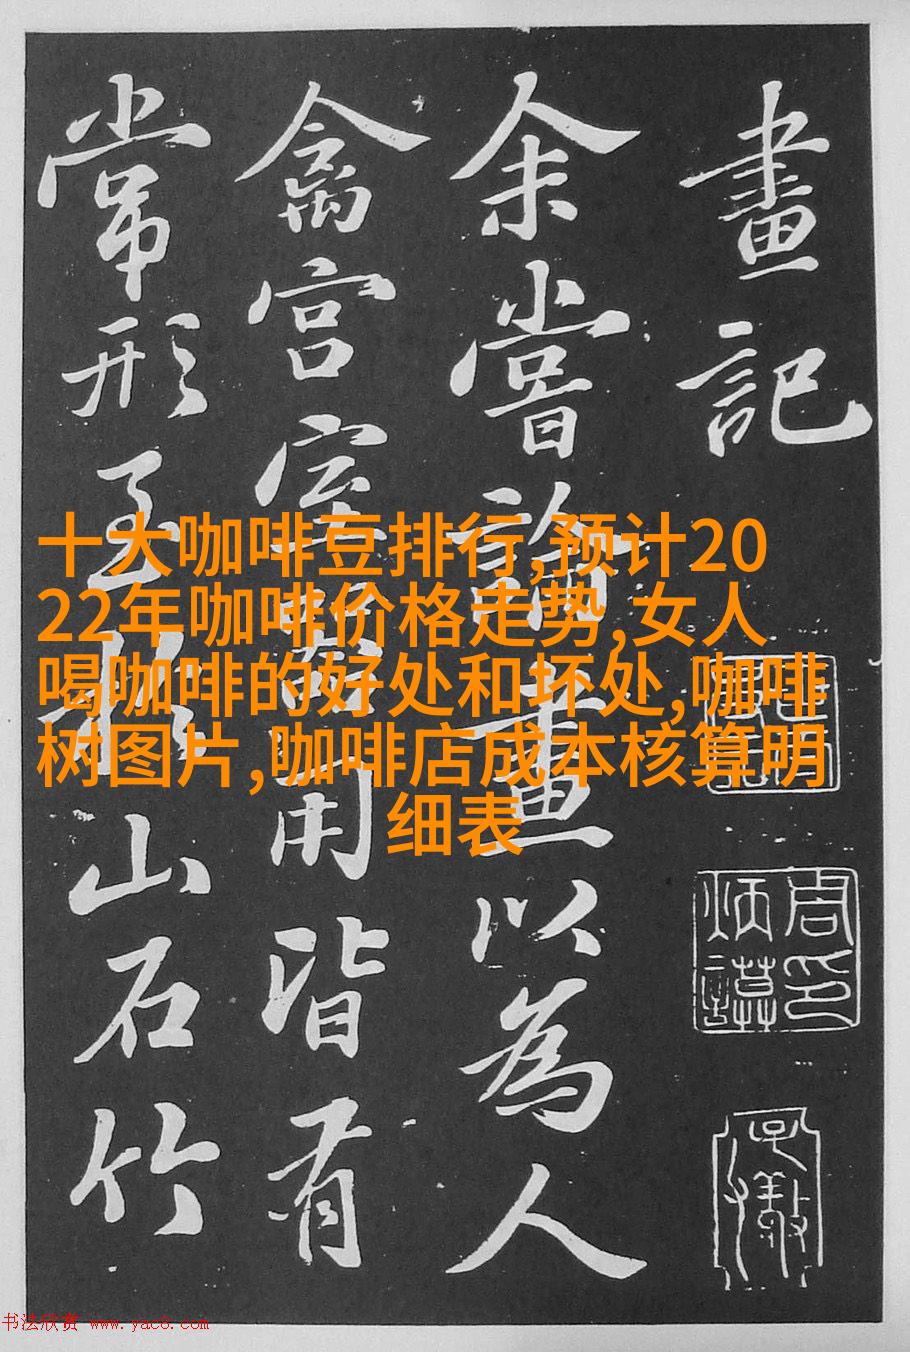 畫記
余嘗論畫以為人
禽宮室器用皆有
常形至於山石竹
十大咖啡豆排行,预计20
22年咖啡价格走势,女人
喝咖啡的好处和坏处,咖啡
树图片,咖啡店成本核算明
细表
书法欣赏 www.yac8.com